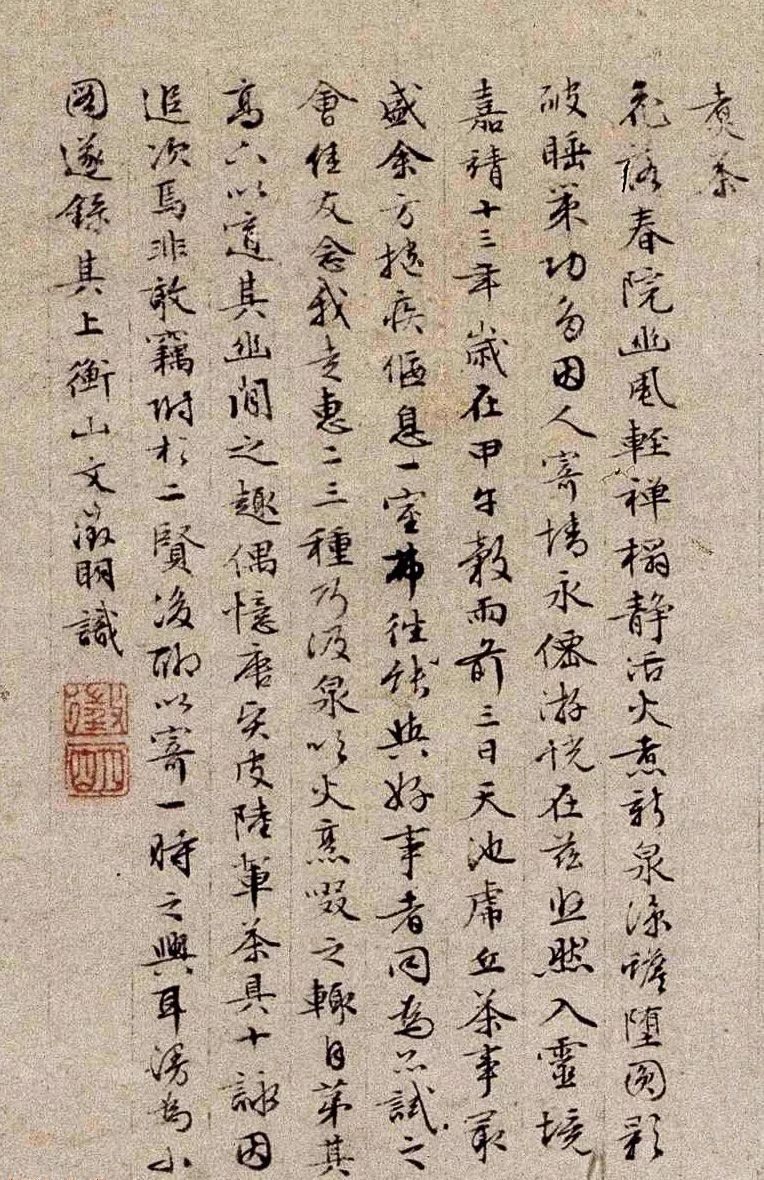 煮茶
花落春院幽風輕禪榻靜活火煮新泉涼蟾墮圓影
破睡策功多因人寄情永僊游恍在茲悠然入靈境
嘉靖十三年歲在甲午穀雨前三日天池虎丘茶事最
盛余方抱疾偃息一室弗往能與好事者同為品試之
會佳友念我走惠二三種乃汲泉以火烹啜之輒自第其
高下以適其幽閒之趣偶憶唐賢皮陸輩茶具十詠因
追次焉非敢竊附於二賢後聊以寄一時之興耳漫為小
圖遂錄其上衡山文徵明識
徵明